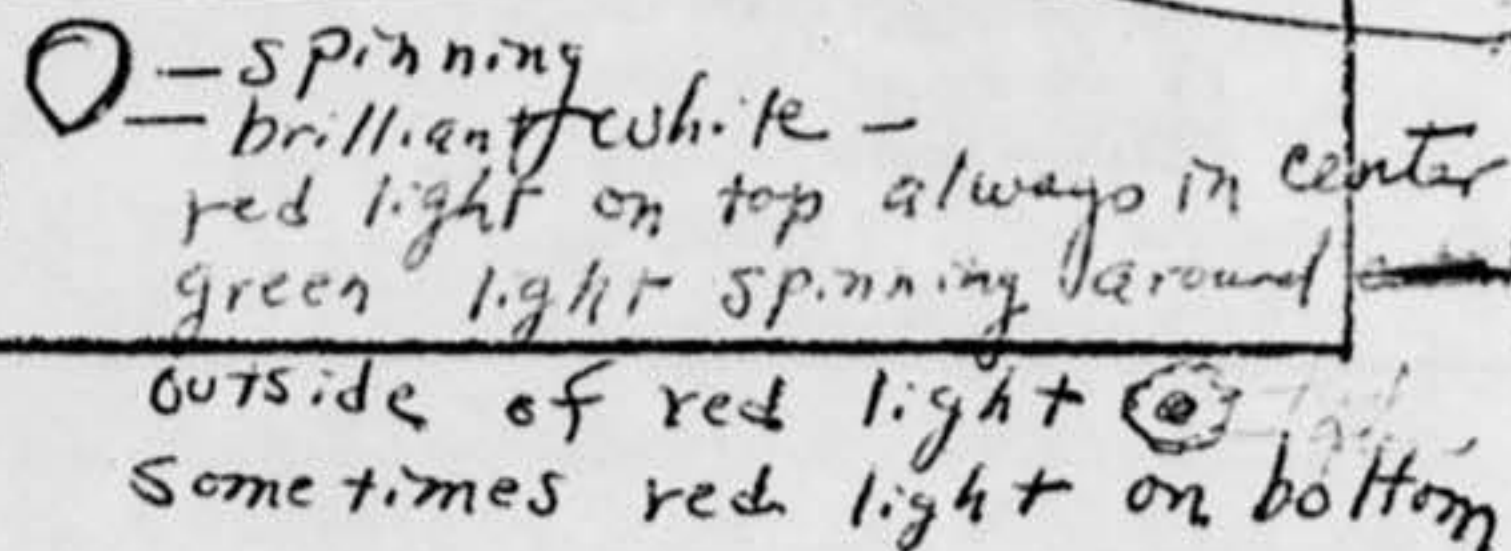 — spinning
— brilliant white —
red light on top always in center
green light spinning around
outside of red light
Sometimes red light on bottom